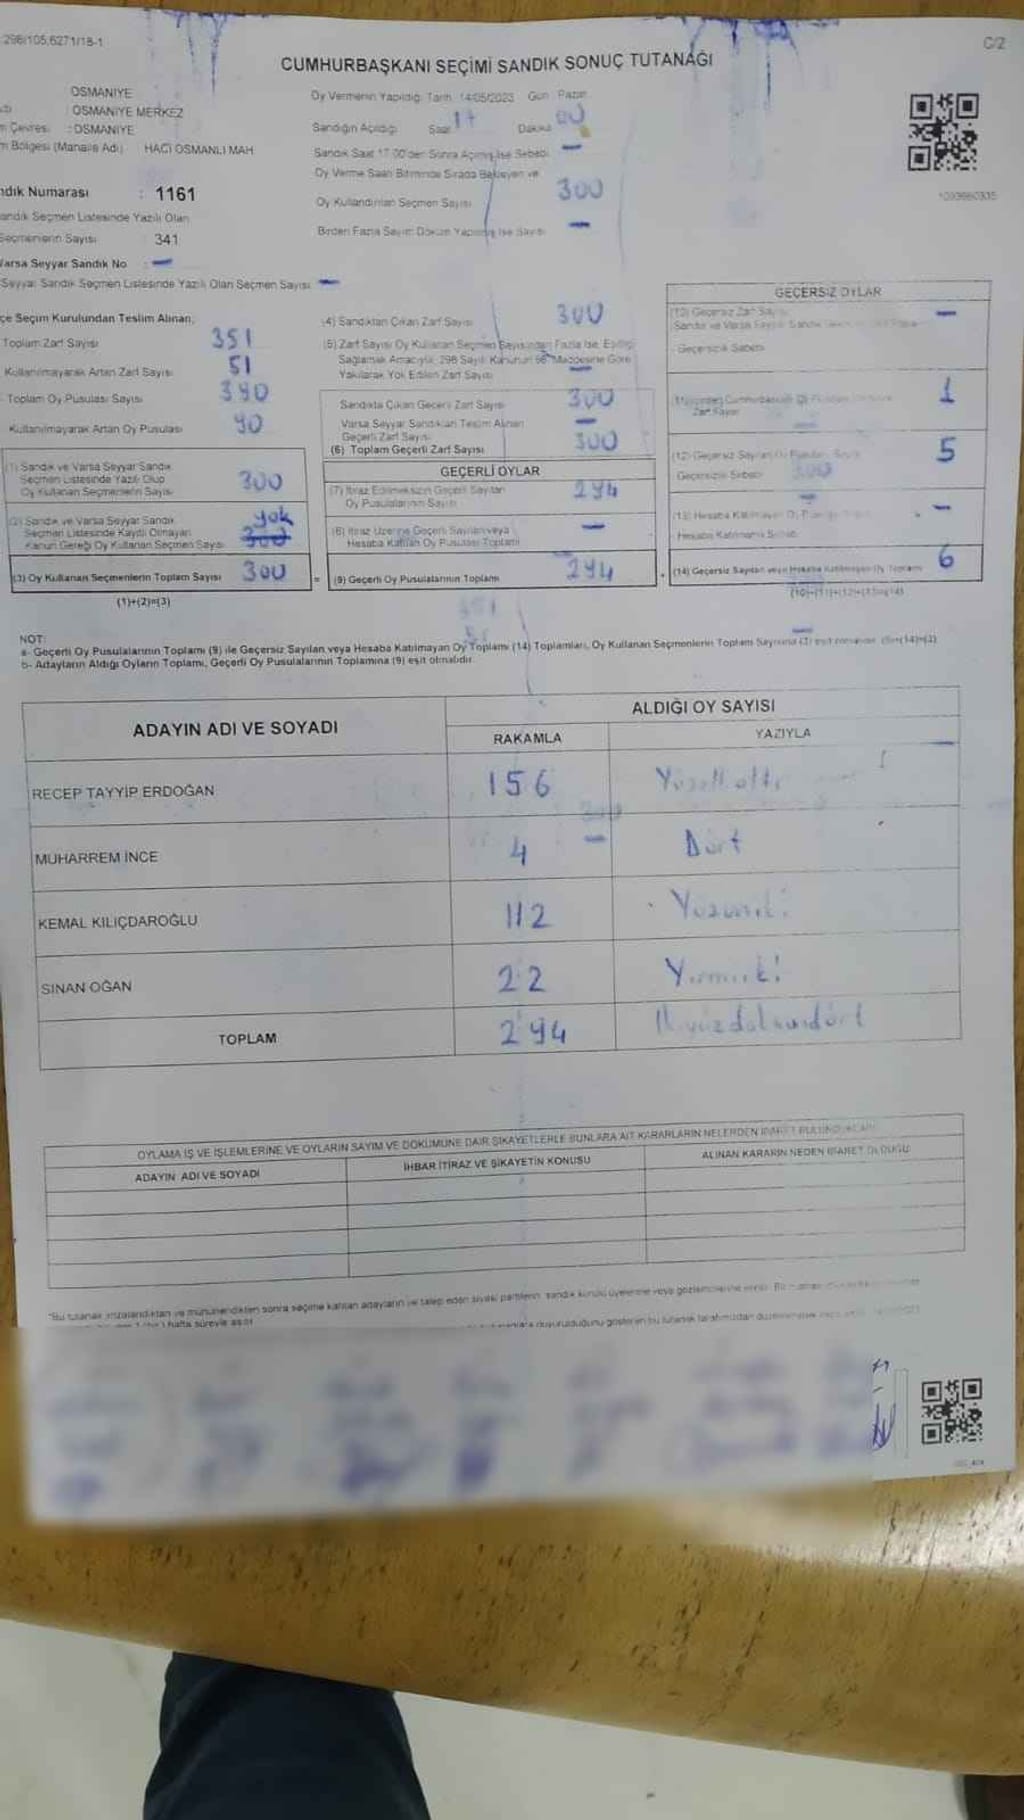 298/105,6271/18-1
C/2
CUMHURBAŞKANI SEÇİMİ SANDIK SONUÇ TUTANAĞI
OSMANİYE
: OSMANİYE MERKEZ
Çevresi : OSMANİYE
Bölgesi (Mahalle Adı) HACI OSMANLI MAH
Sandık Numarası : 1161
Sandık Seçmen Listesinde Yazılı Olan
Seçmenlerin Sayısı : 341
Varsa Seyyar Sandık No : -
Seyyar Sandık Seçmen Listesinde Yazılı Olan Seçmen Sayısı -
Oy Vermenin Yapıldığı Tarih 14/05/2023 Gün Pazar
Sandığın Açıldığı Saat 17 Dakika 00
Sandık Saat 17.00'den Sonra Açılmış İse Sebebi -
Oy Verme Saati Bitiminde Sırada Bekleyen ve
Oy Kullandırılan Seçmen Sayısı 300
Birden Fazla Sayım Döküm Yapılmış İse Sayısı -
1093660335
İlçe Seçim Kurulundan Teslim Alınan;
Toplam Zarf Sayısı 351
Kullanılmayarak Artan Zarf Sayısı 51
Toplam Oy Pusulası Sayısı 390
Kullanılmayarak Artan Oy Pusulası 90
(1) Sandık ve Varsa Seyyar Sandık
Seçmen Listesinde Yazılı Olup
Oy Kullanan Seçmenlerin Sayısı 300
(2) Sandık ve Varsa Seyyar Sandık
Seçmen Listesinde Kayıtlı Olmayan
Kanun Gereği Oy Kullanan Seçmen Sayısı yok 300
(3) Oy Kullanan Seçmenlerin Toplam Sayısı 300
(1)+(2)=(3)
(4) Sandıktan Çıkan Zarf Sayısı 300
(5) Zarf Sayısı Oy Kullanan Seçmen Sayısından Fazla İse, Eşitliği
Sağlamak Amacıyla, 298 Sayılı Kanunun 98. Maddesine Göre
Yakılarak Yok Edilen Zarf Sayısı -
Sandıkta Çıkan Geçerli Zarf Sayısı 300
Varsa Seyyar Sandıktan Teslim Alınan
Geçerli Zarf Sayısı -
(6) Toplam Geçerli Zarf Sayısı 300
GEÇERLİ OYLAR
(7) İtiraz Edilmeksizin Geçerli Sayılan
Oy Pusulalarının Sayısı 294
(8) İtiraz Üzerine Geçerli Sayılan veya
Hesaba Katılan Oy Pusulası Toplamı -
= (9) Geçerli Oy Pusulalarının Toplamı 294
GEÇERSİZ OYLAR
(10) Geçersiz Zarf Sayısı -
Geçersizlik Sebebi
Zarf Sayısı 1
(12) Geçersiz Sayılan Oy Pusulası Sayısı 5
Geçersizlik Sebebi
(13) Hesaba Katılmayan Oy Pusulası Sayısı -
Hesaba Katılmama Sebebi
+ (14) Geçersiz Sayılan veya Hesaba Katılmayan Oy Toplamı 6
(10)+(11)+(12)+(13)=(14)
NOT:
a- Geçerli Oy Pusulalarının Toplamı (9) ile Geçersiz Sayılan veya Hesaba Katılmayan Oy Toplamı (14) Toplamları, Oy Kullanan Seçmenlerin Toplam Sayısına (3) eşit olmalıdır. (9)+(14)=(3)
b- Adayların Aldığı Oyların Toplamı, Geçerli Oy Pusulalarının Toplamına (9) eşit olmalıdır.
ADAYIN ADI VE SOYADI
ALDIĞI OY SAYISI
RAKAMLA YAZIYLA
RECEP TAYYİP ERDOĞAN 156 Yüzelli altı
MUHARREM İNCE 4 Dört
KEMAL KILIÇDAROĞLU 112 Yüzoniki
SİNAN OĞAN 22 Yirmiiki
TOPLAM 294 İkiyüzdoksandört
OYLAMA İŞ VE İŞLEMLERİNE VE OYLARIN SAYIM VE DÖKÜMÜNE DAİR ŞİKAYETLERLE BUNLARA AİT KARARLARIN NELERDEN İBARET BULUNDUKLARI
ADAYIN ADI VE SOYADI İHBAR İTİRAZ VE ŞİKAYETİN KONUSU ALINAN KARARIN NEDEN İBARET OLDUĞU
*Bu tutanak imzalandıktan ve mühürlendikten sonra seçime katılan adayların ve talep eden siyasi partilerin sandık kurulu üyelerine veya gözlemcilerine verilir.
hafta süreyle asılır